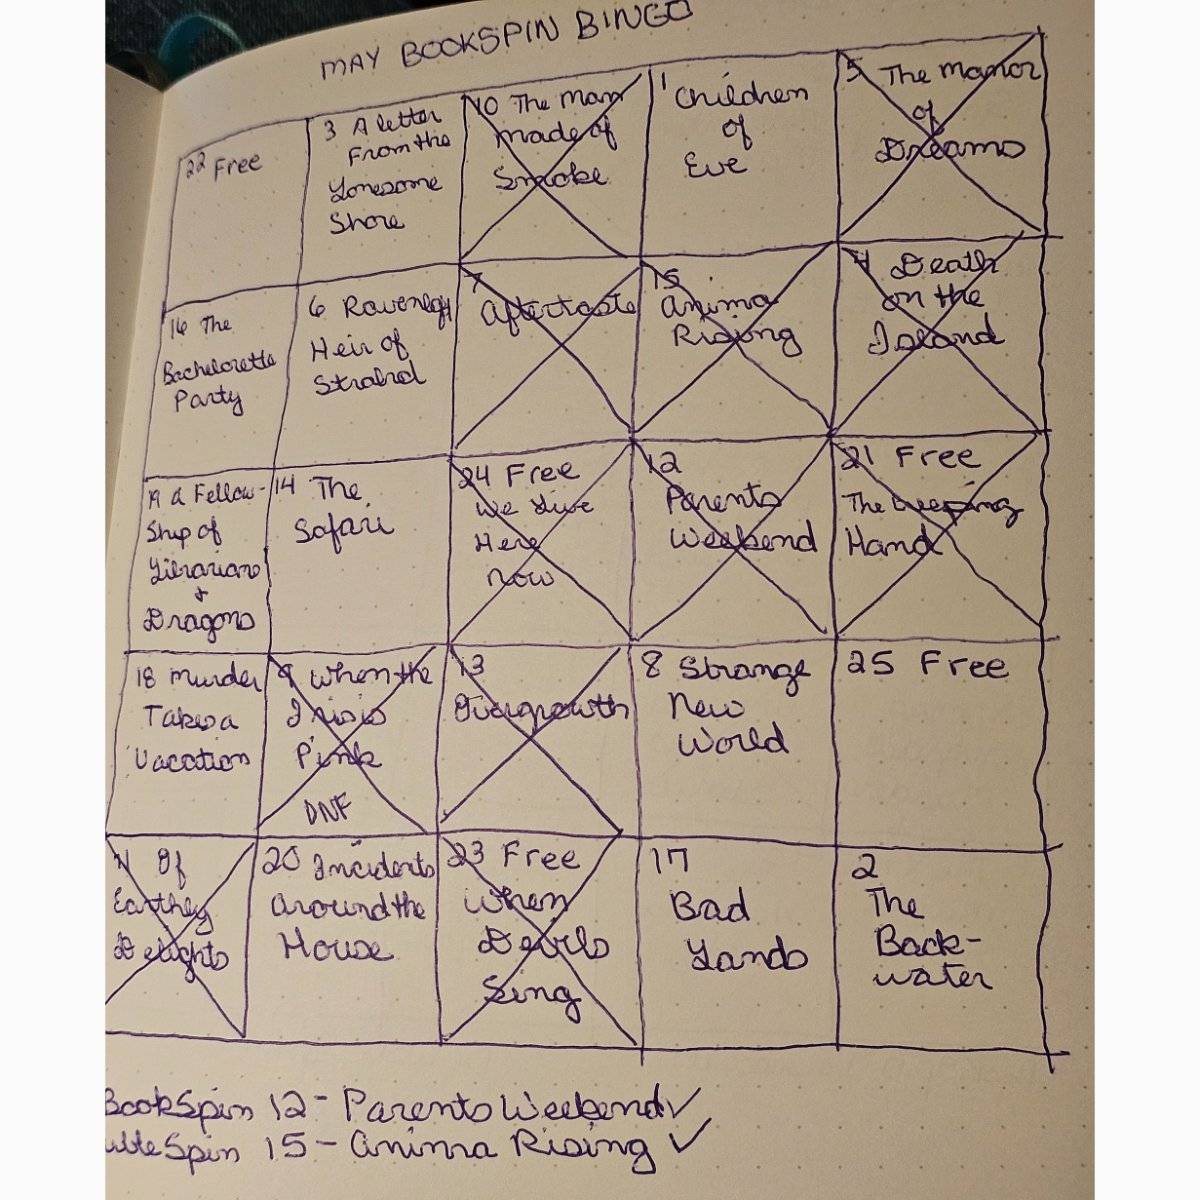 MAY BOOKSPIN BINGO
22 Free
3 A letter
From the
Lonesome
Shore
10 The Man
made of
Smoke
1 Children
of
Eve
5 The Manor
of
Dreams
16 The
Bachelorette
Party
6 Ravenglass
Heir of
7
Aftertaste
15
Anima
Rising
4 Death
on the
Island
19 A Fellow-
Ship of
Librarians
+
Dragons
14 The
Safari
24 Free
We Live
Here
Now
12
Parents
Weekend
21 Free
The
Hand
18 Murder
Takes a
Vacation
9 When the
Pink
DNF
13
Overgrowth
8 Strange
New
World
25 Free
11 Of
Earthly
Delights
20 Incidents
Around the
House
23 Free
When
Devils
Sing
17
Bad
Lands
2
The
Back-
water
BookSpin 12 - Parents Weekend ✓
ubleSpin 15 - Anima Rising ✓